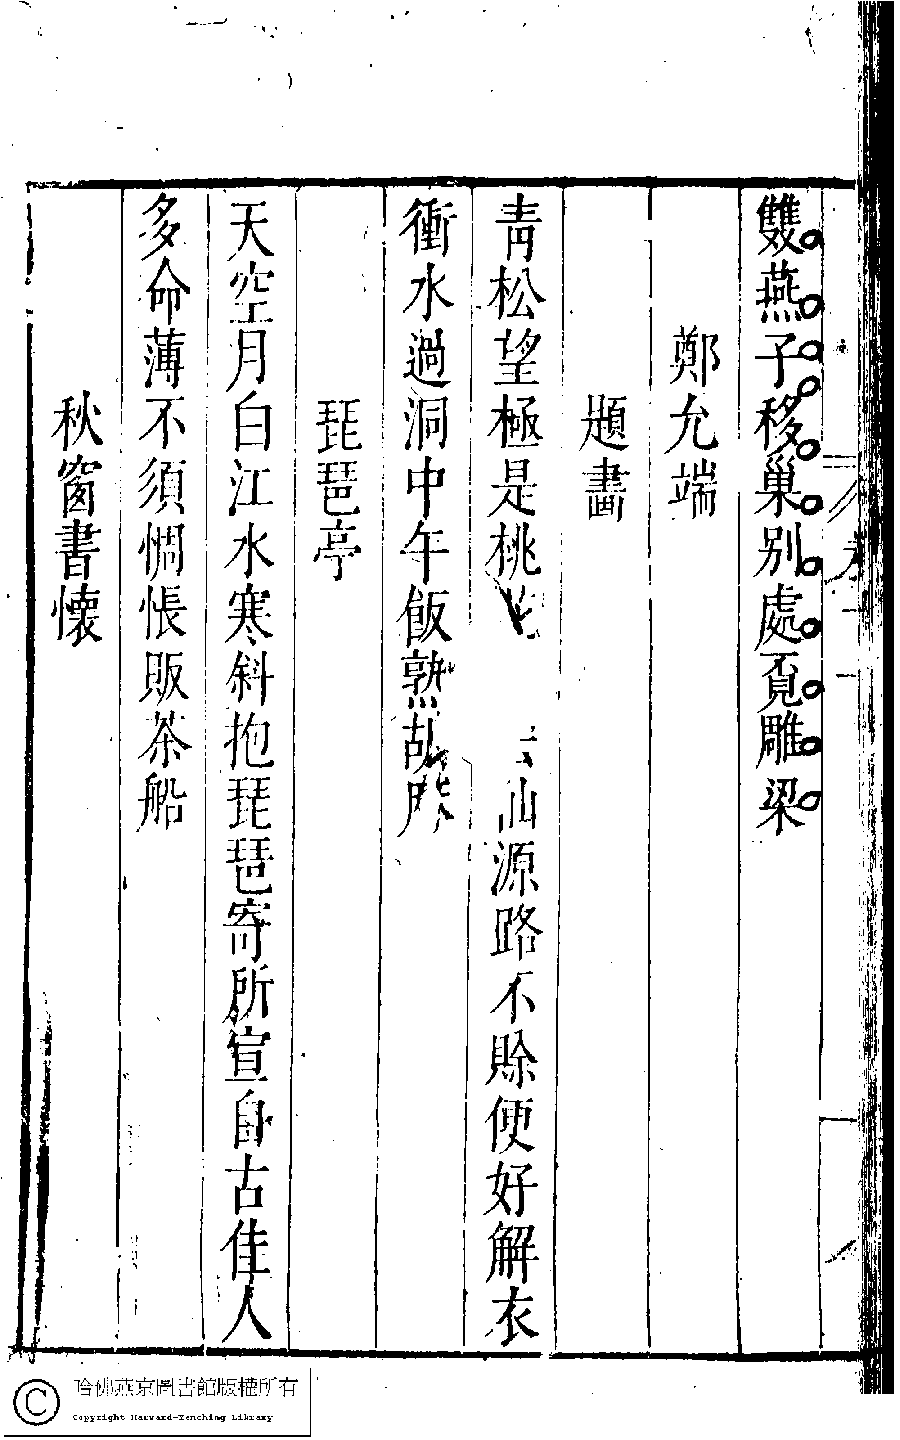 雙燕子移巢別處覓雕梁
鄭允端
題畫
青松望極是桃花 仙源路不賒便好解衣
衝水過洞中午飯熟胡麻
琵琶亭
天空月白江水寒斜抱琵琶寄所宣自古佳人
多命薄不須惆悵販茶船
秋窗書懷
哈佛燕京圖書館版權所有
Copyright Harvard-Yenching Library